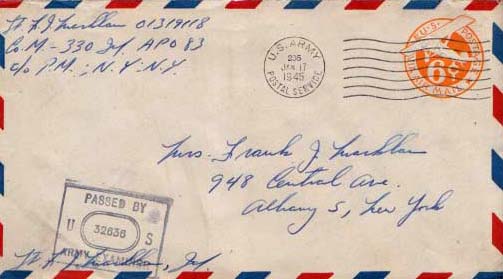 01319118
Co. M - 330 Inf. APO 83
c/o P.M. ; N.Y. N.Y.
U.S. ARMY
235
JAN 17
1945
POSTAL SERVICE
U.S. POSTAGE
6¢
VIA AIR MAIL
Mrs. Frank J
948 Central Ave.
Albany 5, New York
PASSED BY
U 32636 S
ARMY EXAMINER